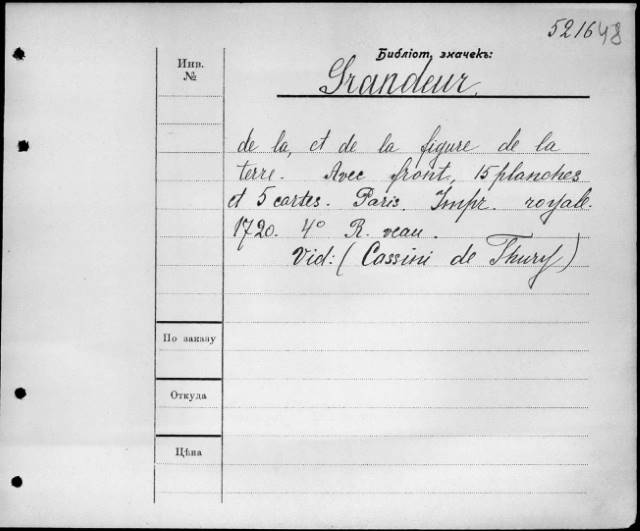 521648
Библіот. значекъ:
Инв.
№
Grandeur.
de la, et de la figure de la
terre. Avec front, 15 planches
et 5 cartes. Paris. Impr. royale.
1720. 4° R. veau.
Vid: (Cassini de Thury)
По заказу
Откуда
Цѣна